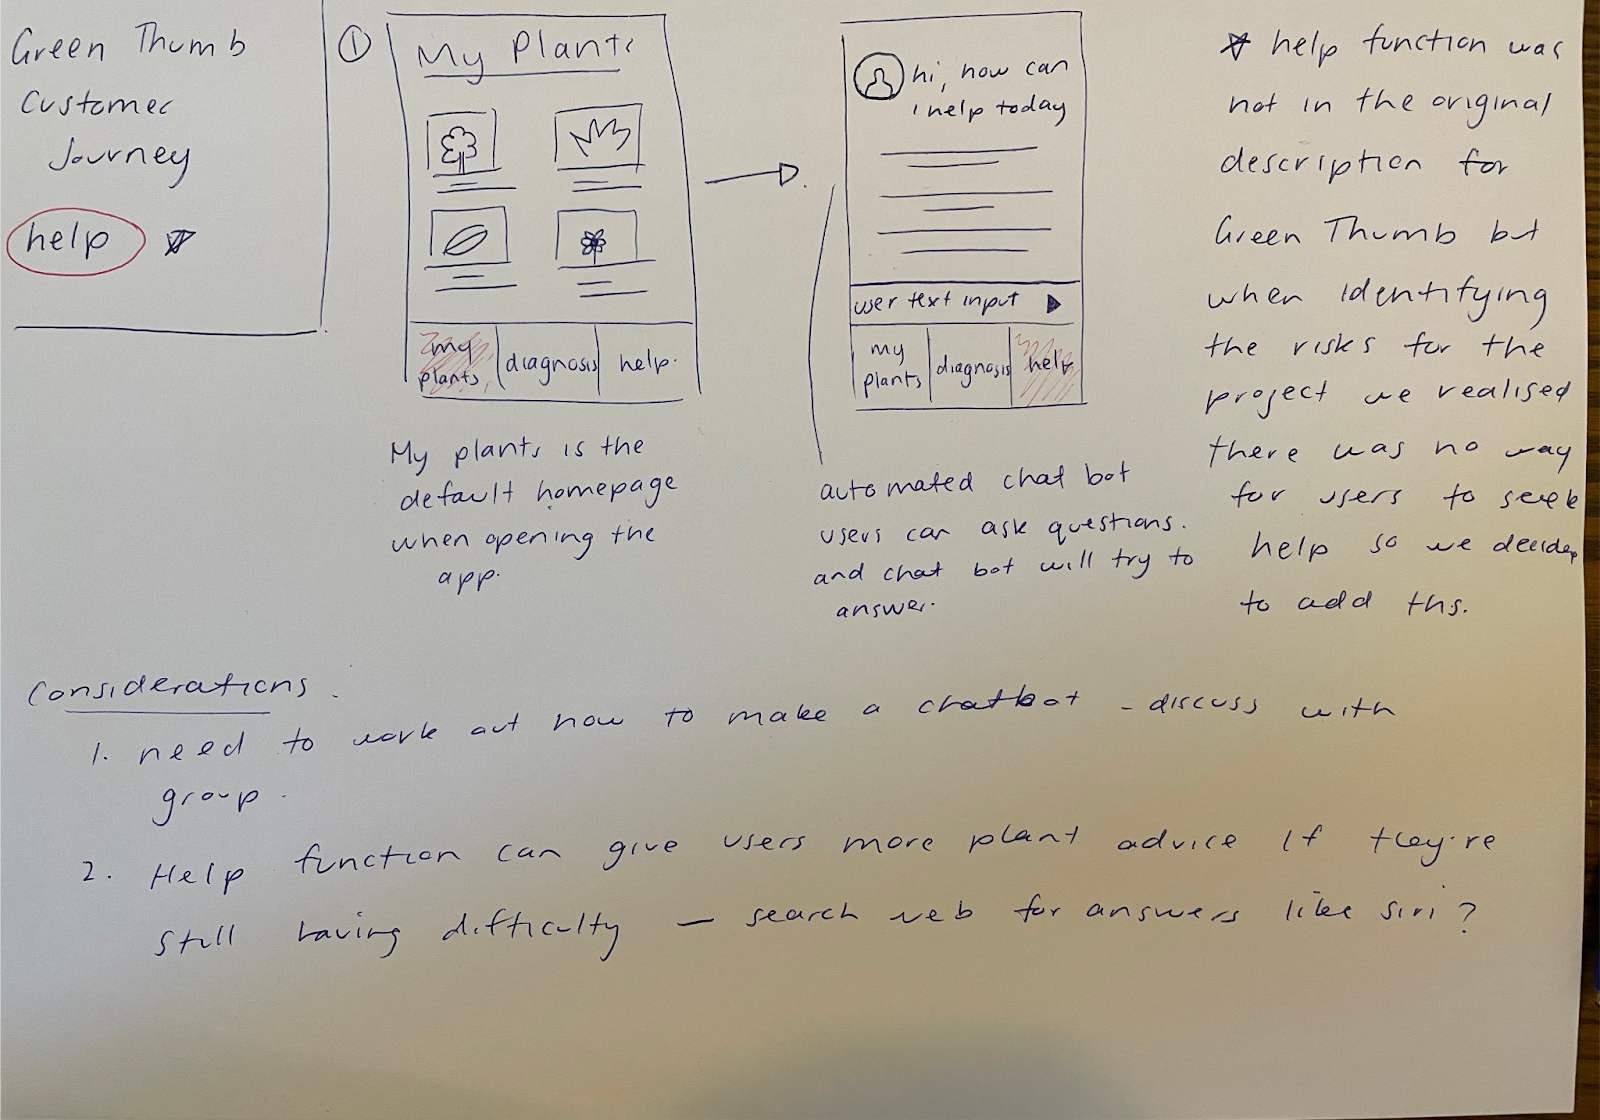 Green Thumb
Customer
Journey
help
1
My Plants
my
plants
diagnosis
help.
My plants is the
default homepage
when opening the
app.
hi, how can
i help today
user text input
my
plants
diagnosis
help
automated chat bot
users can ask questions.
and chat bot will try to
answer.
help function was
not in the original
description for
Green Thumb but
when identifying
the risks for the
project we realised
there was no way
for users to seek
help so we decided
to add ths.
Considerations.
1. need to work out how to make a chatbot - discuss with
group.
2. Help function can give users more plant advice if they're
still having difficulty - search web for answers like siri?